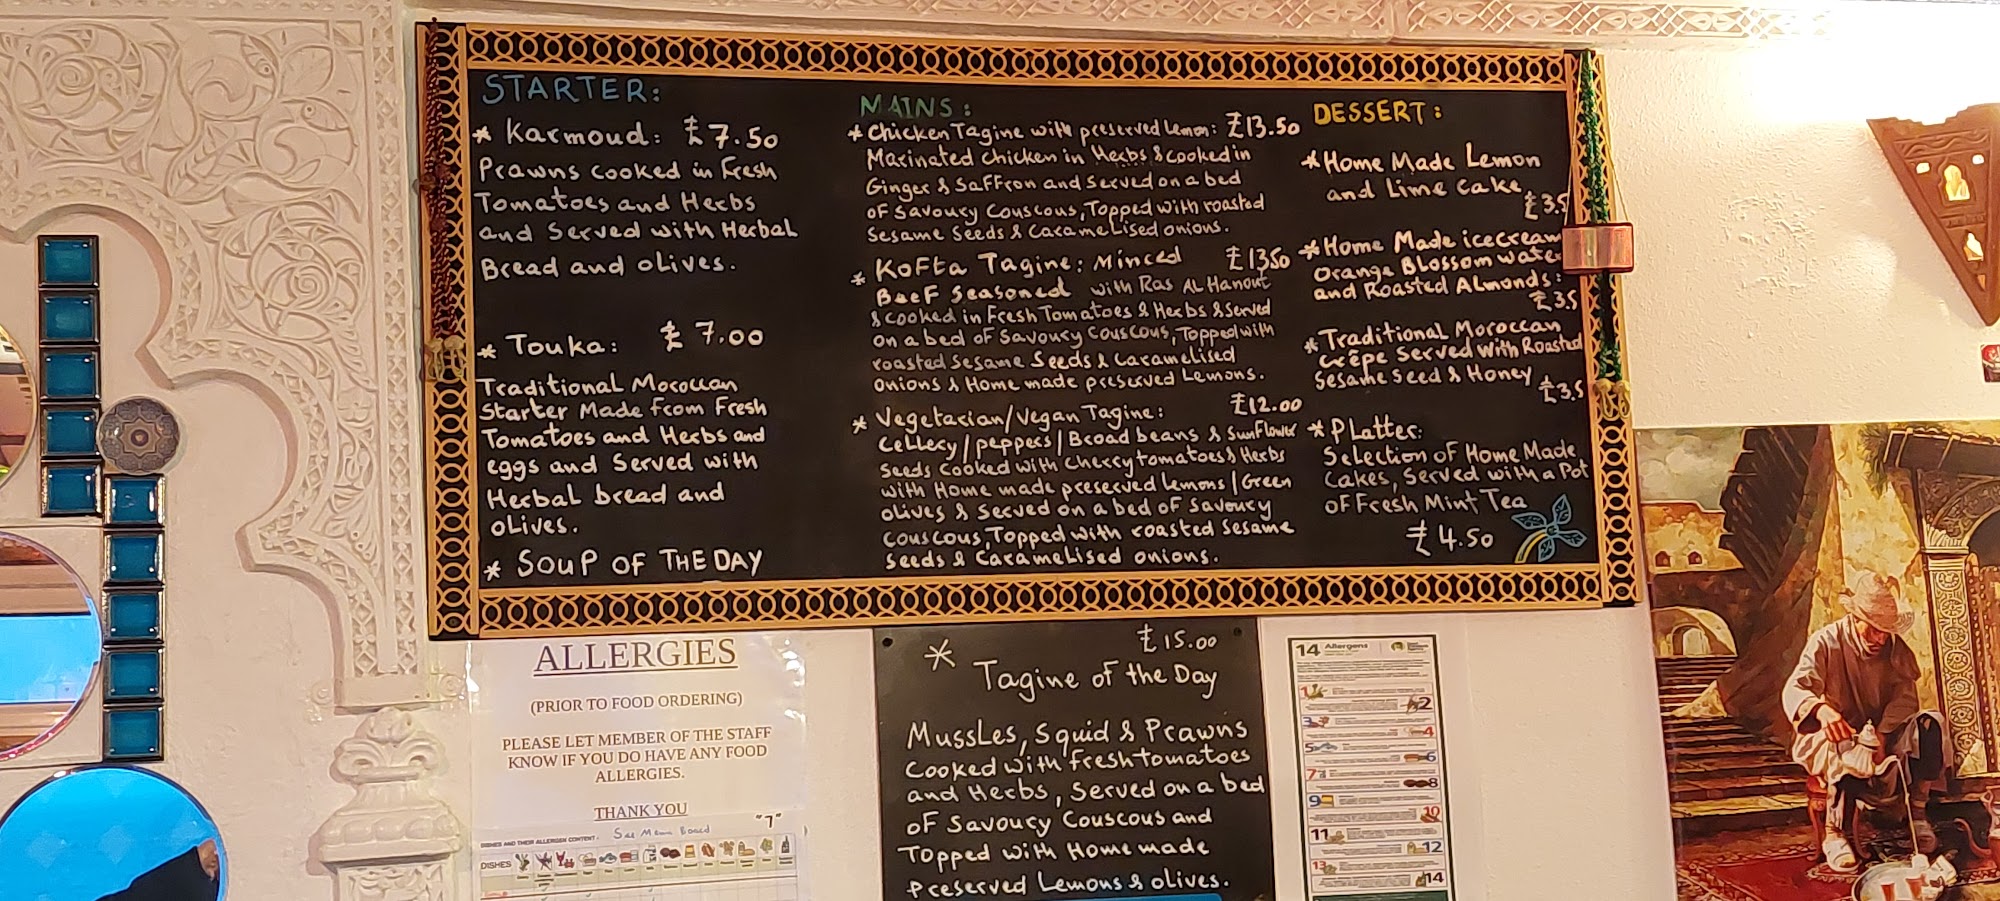 STARTER:
* Karmoud: £7.50
Prawns cooked in Fresh
Tomatoes and Herbs
and Served with Herbal
Bread and olives.
* Touka: £7.00
Traditional Moroccan
Starter Made from Fresh
Tomatoes and Herbs and
eggs and Served with
Herbal bread and
olives.
* SOUP OF THE DAY
MAINS:
* Chicken Tagine with preserved Lemon: £13.50
Marinated chicken in Herbs & cooked in
Ginger & Saffron and Served on a bed
of Savoury Couscous, Topped with roasted
Sesame Seeds & Caramelised onions.
* Kofta Tagine: Minced £13.50
Beef Seasoned with Ras Al Hanout
& cooked in Fresh Tomatoes & Herbs & Served
on a bed of Savoury Couscous, Topped with
roasted Sesame Seeds & Caramelised
onions & Home made preserved Lemons.
* Vegetarian/Vegan Tagine: £12.00
Cellery/peppers/Broad beans & Sunflower
Seeds cooked with Cherry tomatoes & Herbs
with Home made preserved lemons/Green
olives & Served on a bed of Savoury
couscous, Topped with roasted Sesame
Seeds & Caramelised onions.
DESSERT:
* Home Made Lemon
and Lime cake
£3.5
* Home Made icecream
Orange Blossom water
and Roasted Almonds:
£3.5
* Traditional Moroccan
crêpe Served with Roasted
Sesame Seed & Honey
£3.5
* Platter:
Selection of Home Made
Cakes, Served with a Pot
of Fresh Mint Tea
£4.50
ALLERGIES
(PRIOR TO FOOD ORDERING)
PLEASE LET MEMBER OF THE STAFF
KNOW IF YOU DO HAVE ANY FOOD
ALLERGIES.
THANK YOU
DISHES AND THEIR ALLERGEN CONTENT - See Menu Board "7"
DISHES
£15.00
* Tagine of the Day
Mussles, Squid & Prawns
Cooked with fresh tomatoes
and Herbs, Served on a bed
of Savoury Couscous and
Topped with Home made
Preserved Lemons & olives.
14 Allergens
1
2
3
4
5
6
7
8
9
10
11
12
13
14